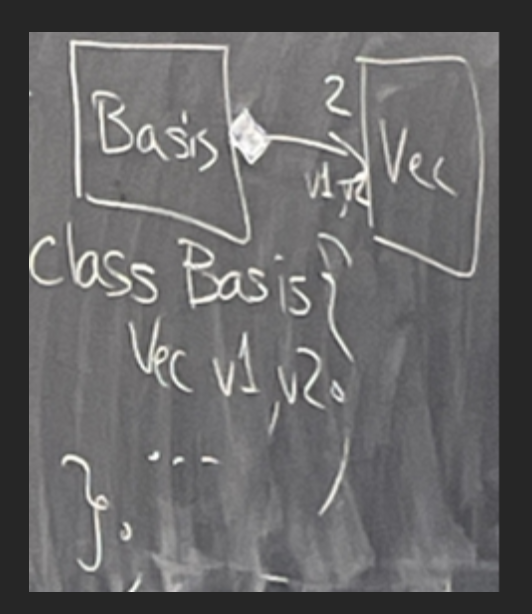 Basis 2 Vec
v1, v2
class Basis {
Vec v1, v2;
...
};